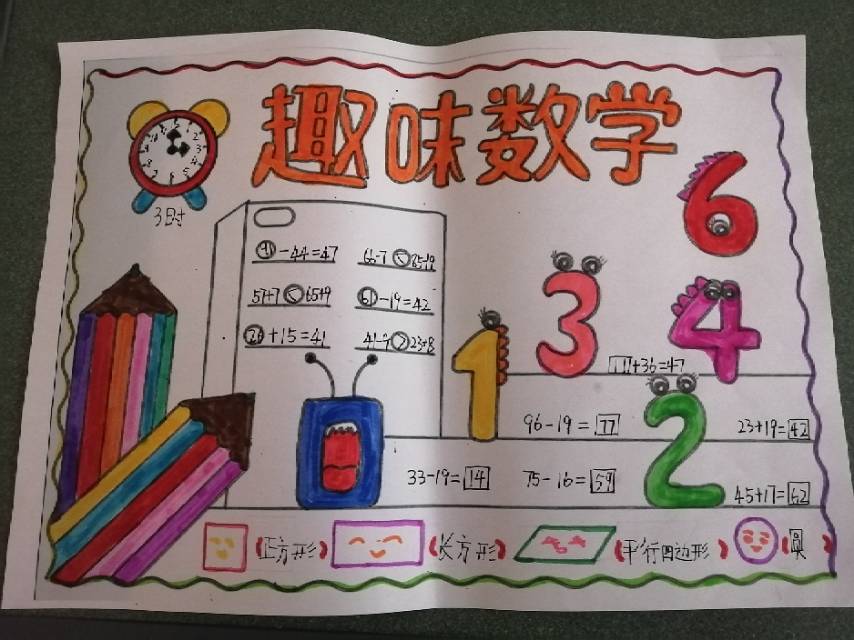 趣味数学
6
3时
91-44=47
66-7<65+9
57+7<65+9
61-19=42
26+15=41
3
4
11+36=47
1
0
2
96-19=77
23+19=42
33-19=14
75-16=59
45+17=62
(正方形)
(长方形)
(平行四边形)
(圆)